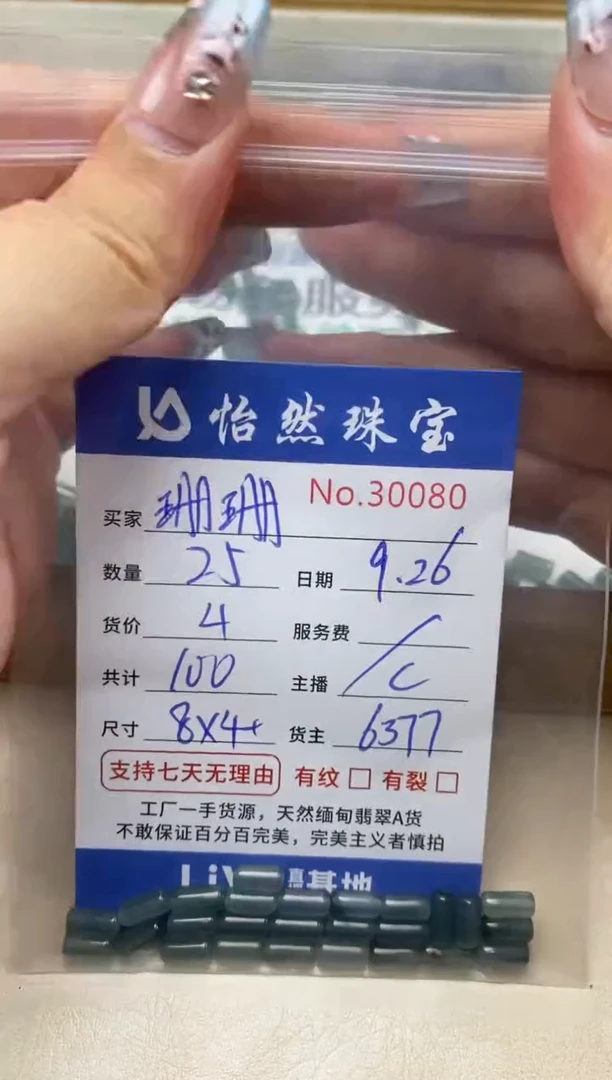 怡然珠宝
No.30080
买家 珊珊
数量 25 日期 9.26
货价 4 服务费 /
共计 100 主播 C
尺寸 8X4+ 货主 6377
支持七天无理由 有纹 □ 有裂 □
工厂一手货源，天然缅甸翡翠A货
不敢保证百分百完美，完美主义者慎拍
基地